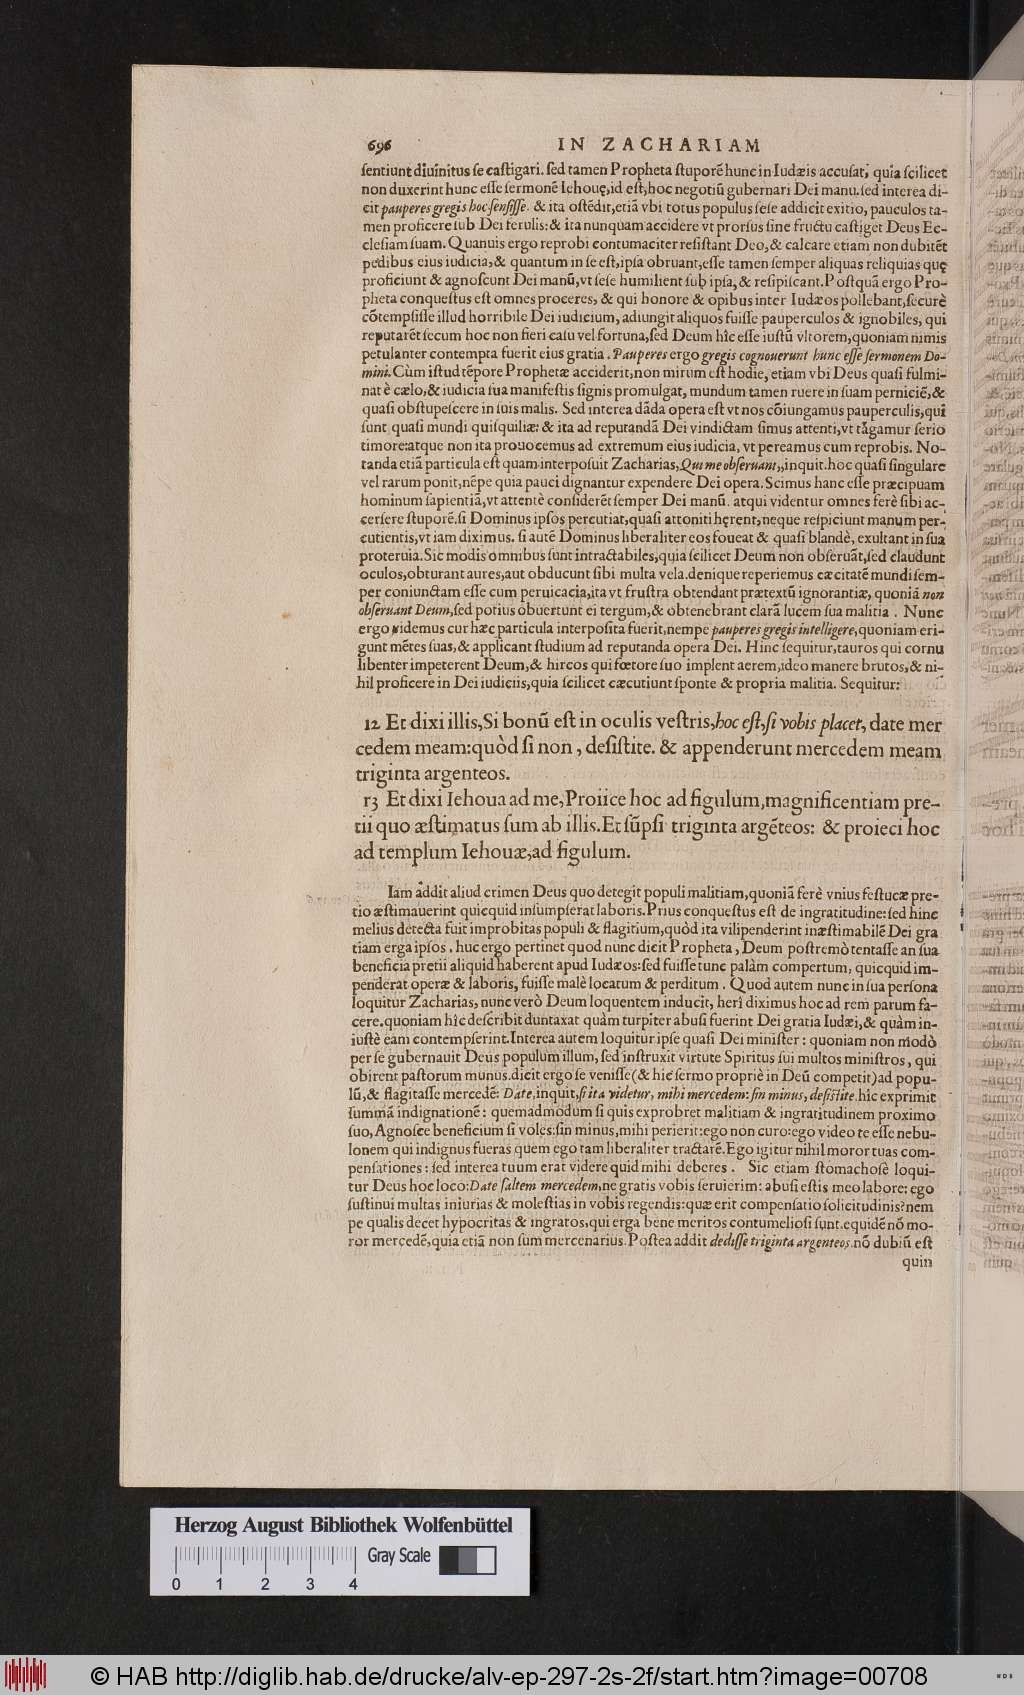 696 IN ZACHARIAM
ſentiunt diuinitus ſe caſtigari. ſed tamen Propheta ſtuporē hunc in Iudæis accuſat, quia ſcilicet
non duxerint hunc eſſe ſermonē Iehouę, id eſt, hoc negotiū gubernari Dei manu. ſed interea di-
cit pauperes gregis hoc ſenſiſſe. & ita oſtēdit, etiā vbi totus populus ſeſe addicit exitio, pauculos ta-
men proficere ſub Dei ferulis: & ita nunquam accidere vt prorſus ſine fructu caſtiget Deus Ec-
cleſiam ſuam. Quanuis ergo reprobi contumaciter reſiſtant Deo, & calcare etiam non dubitēt
pedibus eius iudicia, & quantum in ſe eſt, ipſa obruant, eſſe tamen ſemper aliquas reliquias quę
proficiunt & agnoſcunt Dei manū, vt ſeſe humilient ſub ipſa, & reſipiſcant. Poſtquā ergo Pro-
pheta conqueſtus eſt omnes proceres, & qui honore & opibus inter Iudæos pollebant, ſecurè
cōtempſiſſe illud horribile Dei iudicium, adiungit aliquos fuiſſe pauperculos & ignobiles, qui
reputarēt ſecum hoc non fieri caſu vel fortuna, ſed Deum hîc eſſe iuſtū vltorem, quoniam nimis
petulanter contempta fuerit eius gratia. Pauperes ergo gregis cognouerunt hunc eſſe ſermonem Do-
mini. Cùm iſtud tēpore Prophetæ acciderit, non mirum eſt hodie, etiam vbi Deus quaſi fulmi-
nat è cælo, & iudicia ſua manifeſtis ſignis promulgat, mundum tamen ruere in ſuam perniciē, &
quaſi obſtupeſcere in ſuis malis. Sed interea dāda opera eſt vt nos cōiungamus pauperculis, qui
ſunt quaſi mundi quiſquiliæ: & ita ad reputandā Dei vindictam ſimus attenti, vt tāgamur ſerio
timore: atque non ita prouocemus ad extremum eius iudicia, vt pereamus cum reprobis. No-
tanda etiā particula eſt quam interpoſuit Zacharias, Qui me obſeruant, inquit. hoc quaſi ſingulare
vel rarum ponit, nēpe quia pauci dignantur expendere Dei opera. Scimus hanc eſſe præcipuam
hominum ſapientiā, vt attentè conſiderēt ſemper Dei manū. atqui videntur omnes ferè ſibi ac-
cerſere ſtuporē. ſi Dominus ipſos percutiat, quaſi attoniti hęrent, neque reſpiciunt manum per-
cutientis, vt iam diximus. ſi autē Dominus liberaliter eos foueat & quaſi blandè, exultant in ſua
proteruia. Sic modis omnibus ſunt intractabiles, quia ſcilicet Deum non obſeruāt, ſed claudunt
oculos, obturant aures, aut obducunt ſibi multa vela. denique reperiemus cæcitatē mundi ſem-
per coniunctam eſſe cum peruicacia, ita vt fruſtra obtendant prætextū ignorantiæ, quoniā non
obſeruant Deum, ſed potius obuertunt ei tergum, & obtenebrant clarā lucem ſua malitia. Nunc
ergo videmus cur hæc particula interpoſita fuerit, nempe pauperes gregis intelligere, quoniam eri-
gunt mētes ſuas, & applicant ſtudium ad reputanda opera Dei. Hinc ſequitur, tauros qui cornu
libenter impeterent Deum, & hircos qui fœtore ſuo implent aerem, ideo manere brutos, & ni-
hil proficere in Dei iudiciis, quia ſcilicet cæcutiunt ſponte & propria malitia. Sequitur:
12 Et dixi illis, Si bonū eſt in oculis veſtris, hoc eſt, ſi vobis placet, date mer
cedem meam: quòd ſi non, deſiſtite. & appenderunt mercedem meam
triginta argenteos.
13 Et dixi Iehoua ad me, Proiice hoc ad figulum, magnificentiam pre-
tii quo æſtimatus ſum ab illis. Et ſūpſi triginta argēteos: & proieci hoc
ad templum Iehouæ, ad figulum.
Iam addit aliud crimen Deus quo detegit populi malitiam, quoniā ferè vnius feſtucæ pre-
tio æſtimauerint quicquid inſumpſerat laboris. Prius conqueſtus eſt de ingratitudine: ſed hinc
melius detecta fuit improbitas populi & flagitium, quòd ita vilipenderint inæſtimabilē Dei gra
tiam erga ipſos. huc ergo pertinet quod nunc dicit Propheta, Deum poſtremò tentaſſe an ſua
beneficia pretii aliquid haberent apud Iudæos: ſed fuiſſe tunc palàm compertum, quicquid im-
penderat operæ & laboris, fuiſſe malè locatum & perditum. Quod autem nunc in ſua perſona
loquitur Zacharias, nunc verò Deum loquentem inducit, heri diximus hoc ad rem parum fa-
cere. quoniam hîc deſcribit duntaxat quàm turpiter abuſi fuerint Dei gratia Iudæi, & quàm in-
iuſtè eam contempſerint. Interea autem loquitur ipſe quaſi Dei miniſter: quoniam non modò
per ſe gubernauit Deus populum illum, ſed inſtruxit virtute Spiritus ſui multos miniſtros, qui
obirent paſtorum munus. dicit ergo ſe veniſſe (& hic ſermo propriè in Deū competit) ad popu-
lū, & flagitaſſe mercedē: Date, inquit, ſi ita videtur, mihi mercedem: ſin minus, deſiſtite. hîc exprimit
ſummā indignationē: quemadmodum ſi quis exprobret malitiam & ingratitudinem proximo
ſuo, Agnoſce beneficium ſi voles: ſin minus, mihi perierit: ego non curo: ego video te eſſe nebu-
lonem qui indignus fueras quem ego tam liberaliter tractarē. Ego igitur nihil moror tuas com-
penſationes: ſed interea tuum erat videre quid mihi deberes. Sic etiam ſtomachoſè loqui-
tur Deus hoc loco: Date ſaltem mercedem, ne gratis vobis ſeruierim: abuſi eſtis meo labore: ego
ſuſtinui multas iniurias & moleſtias in vobis regendis: quæ erit compenſatio ſolicitudinis? nem
pe qualis decet hypocritas & ingratos, qui erga bene meritos contumelioſi ſunt. equidē nō mo-
ror mercedē, quia etiā non ſum mercenarius. Poſtea addit dediſſe triginta argenteos. nō dubiū eſt
quin
Herzog August Bibliothek Wolfenbüttel
Gray Scale
0 1 2 3 4
© HAB http://diglib.hab.de/drucke/alv-ep-297-2s-2f/start.htm?image=00708